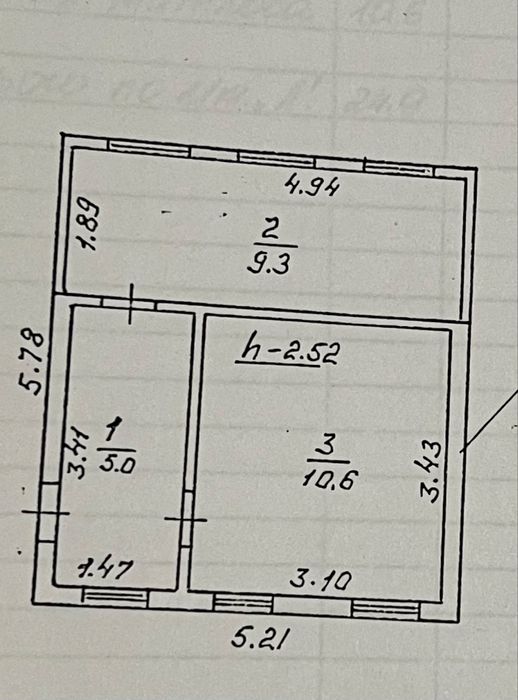 4.94
1.89
2
9.3
h-2.52
5.78
3.41
1
5.0
3
10.6
3.43
1.47
3.10
5.21